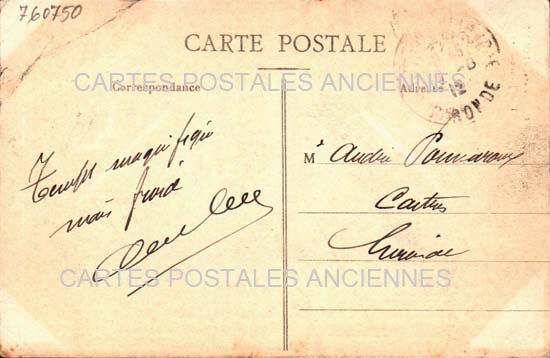 760750
CARTE POSTALE
CARTES POSTALES ANCIENNES
Correspondance
Adresse
12
GIRONDE
Temps magnifique
mais froid
M
André
Castres
Gironde
CARTES POSTALES ANCIENNES